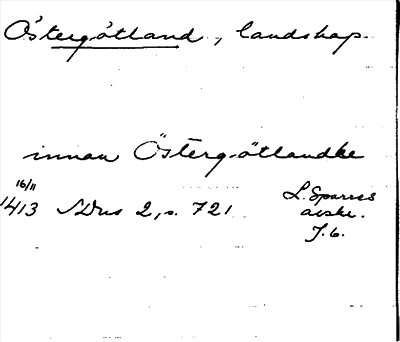 Östergötland, landskap.
innan Östergötlandke
16/11
1413 SDns 2, s. 721
L. Sparres
avskr.
J. 6.